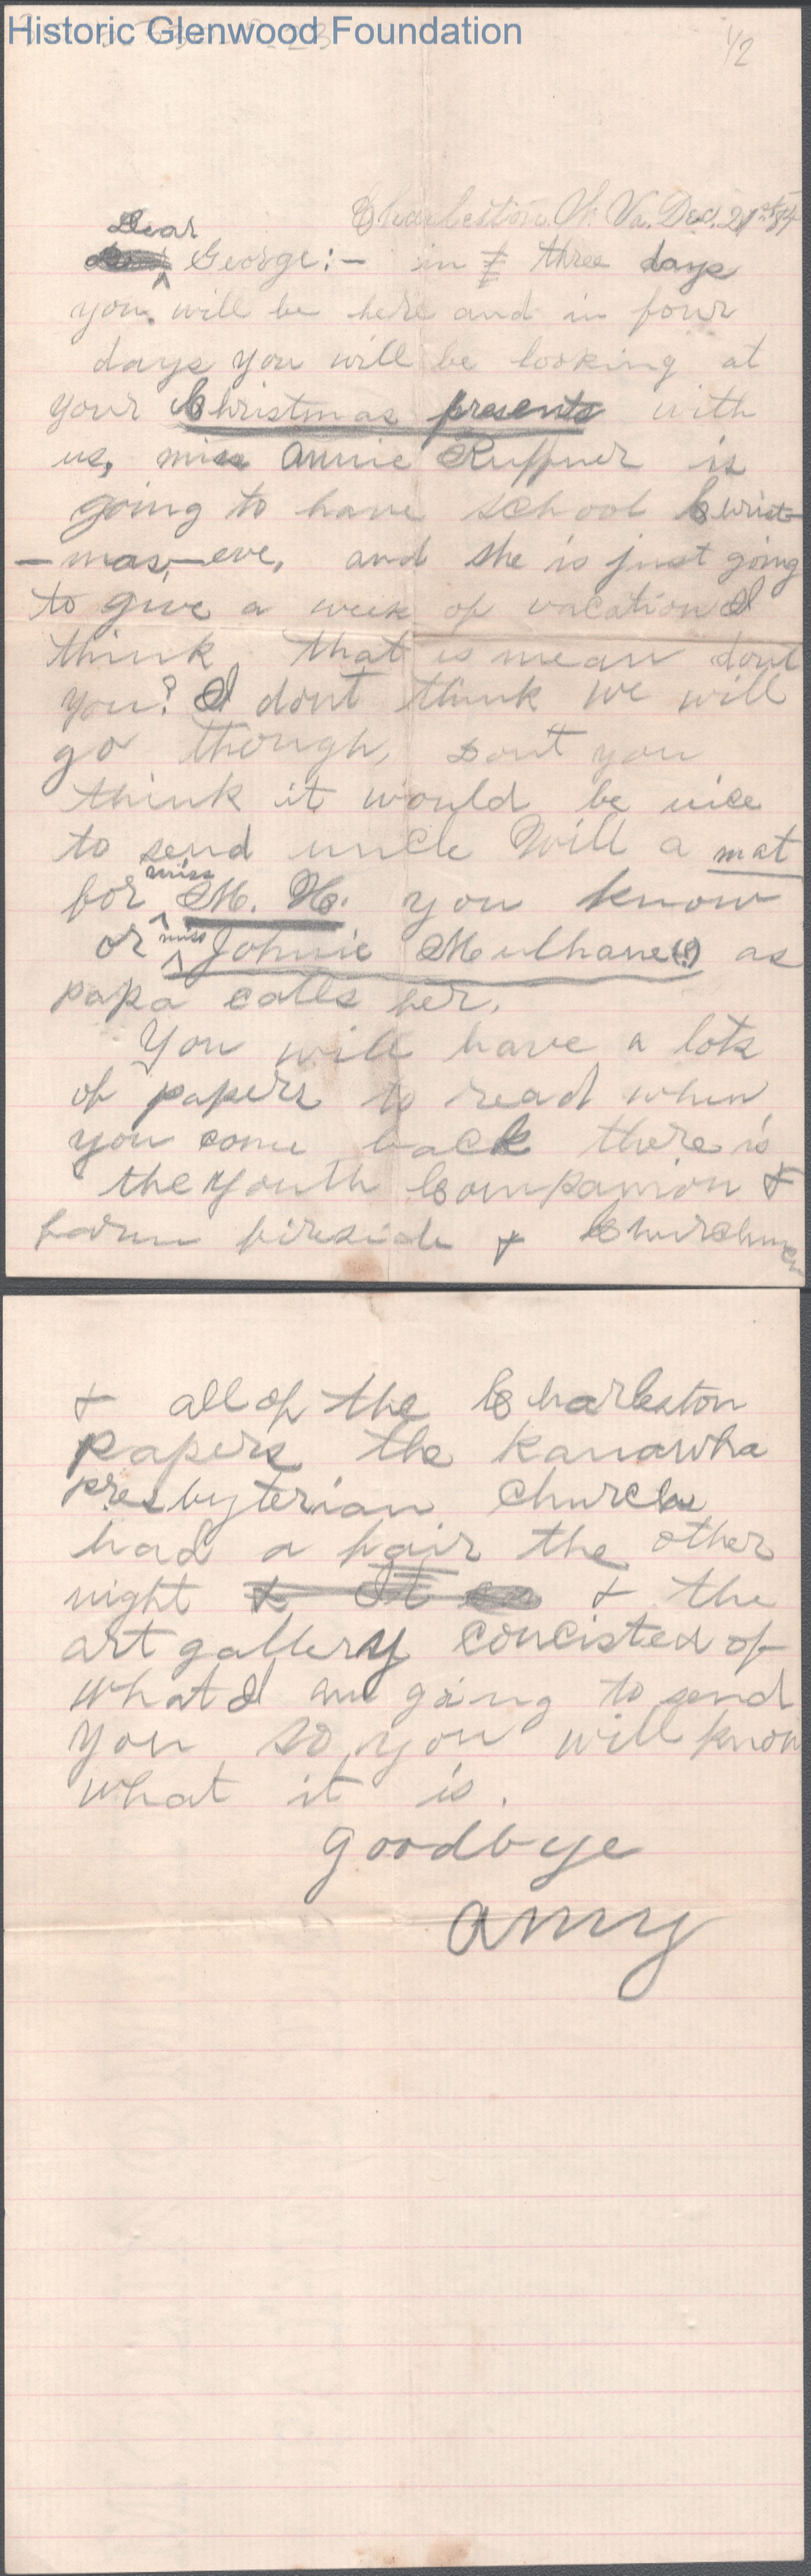 Historic Glenwood Foundation
1/2
Charleston W. Va. Dec. 21st 84
Dear
George:- in three days
you will be here and in four
days you will be looking at
your Christmas presents with
us, miss annie Ruffner is
going to have school Christ-
-mas-eve, and she is just going
to give a week of vacation I
think that is mean dont
you? I dont think we will
go though, Dont you
think it would be nice
to send uncle Will a mat
for miss M. H. you know
or miss Johnie Mulhane(!) as
papa calls her.
You will have a lots
of papers to read when
you come back there is
the Youth Companion &
farm fireside & Churchman
& all of the Charleston
papers the Kanawha
presbyterian Church
had a fair the other
night & It & the
art gallery concisted of
what I am going to send
you so you will know
what it is.
goodbye
amy